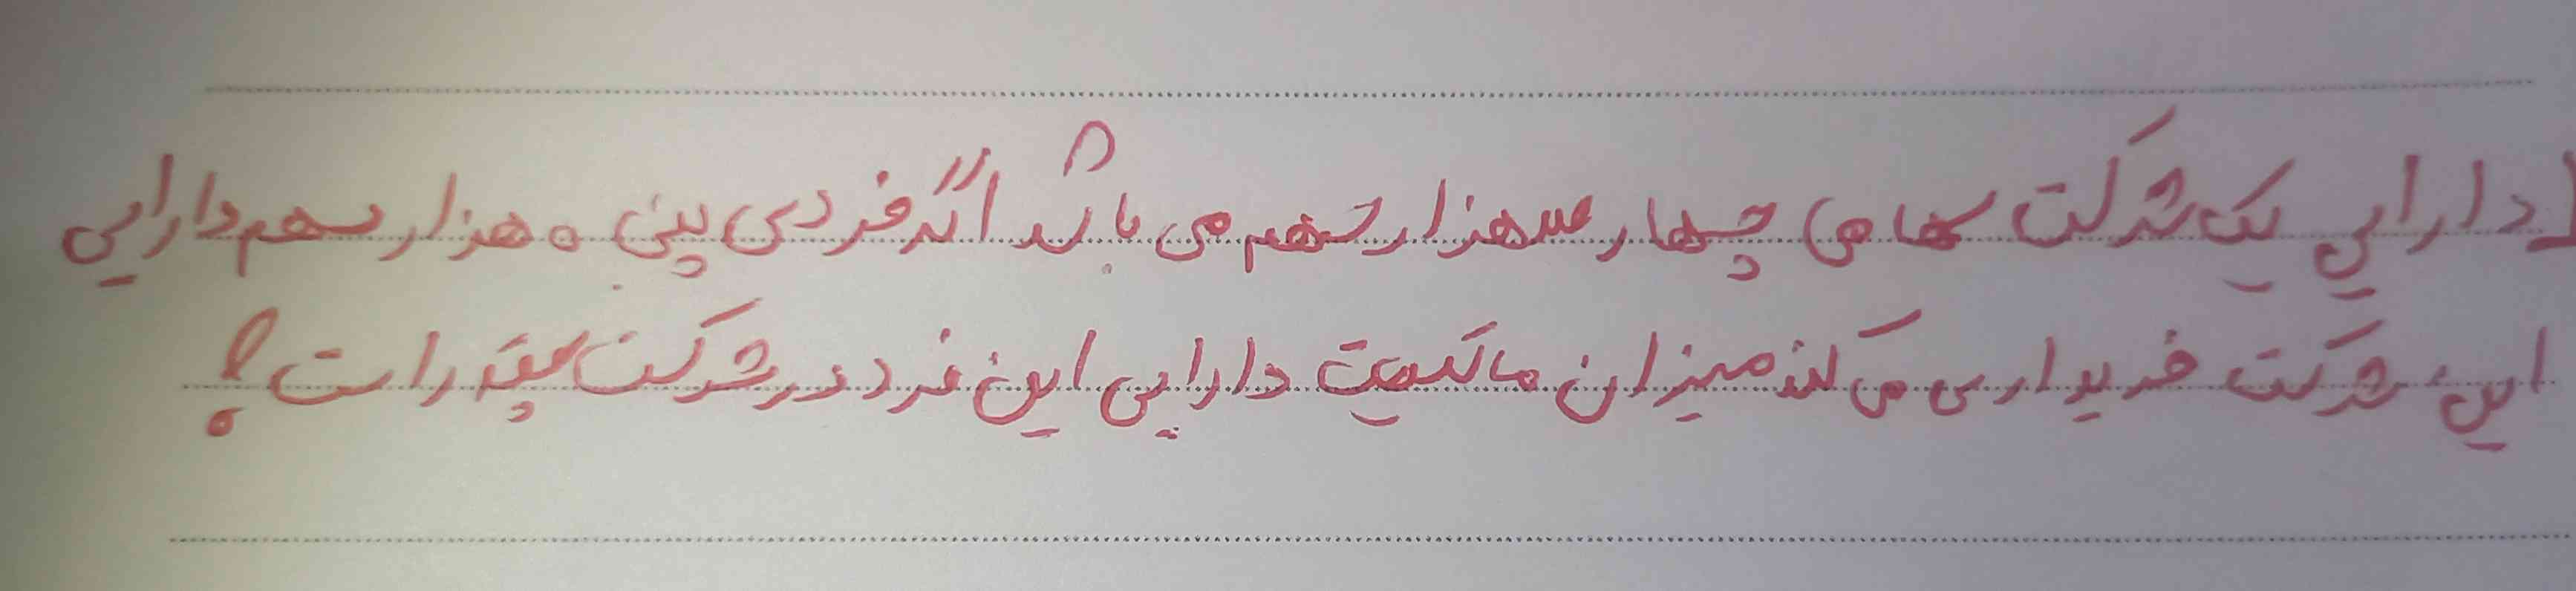 دارایی یک شرکت سهامی چهارصد هزار سهم می باشد اگر فردی پنج هزار سهم دارایی
این شرکت خریداری می کند میزان مالکیت دارایی این فرد در شرکت چقدر است؟